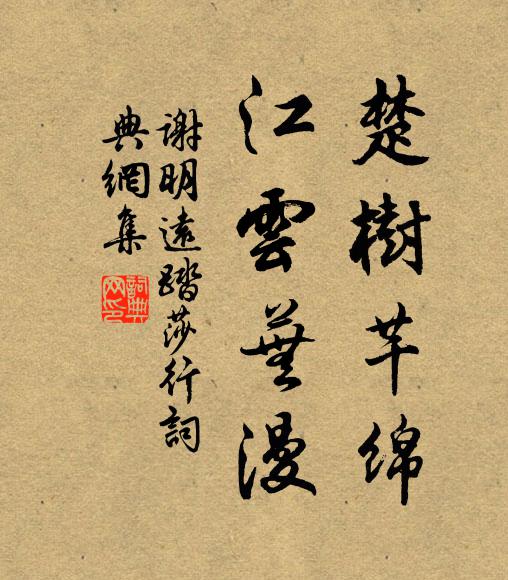 楚樹芊綿
江雲蕪漫
謝明遠踏莎行詞
典網集
詞典
网印